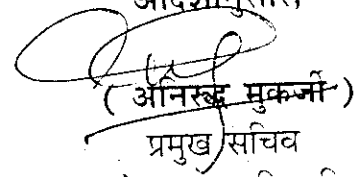 आदेशानुसार,
( अनिरूद्ध मुकर्जी )
प्रमुख सचिव